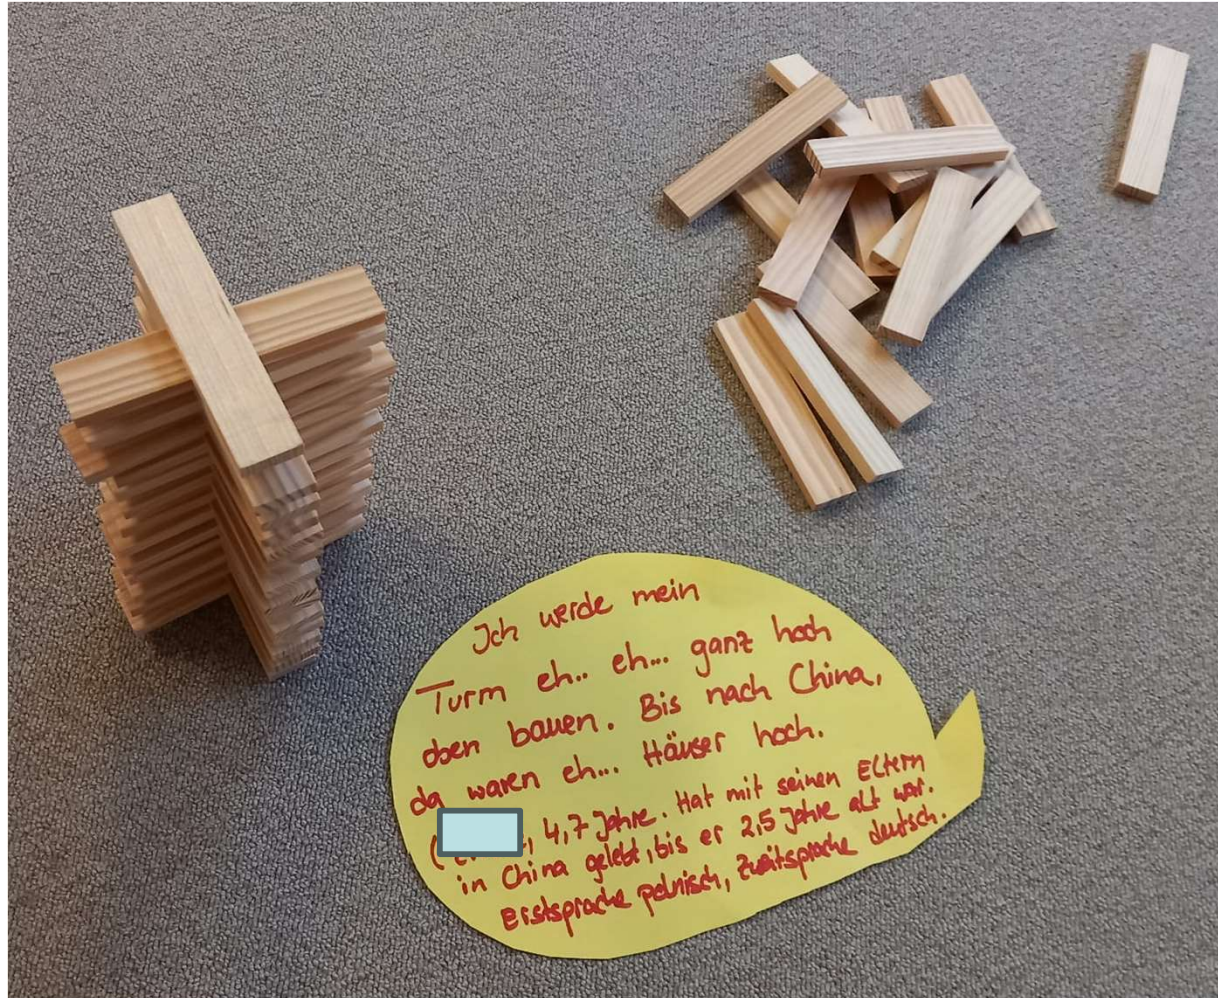 Ich werde mein
Turm eh.. eh... ganz hoch
oben bauen. Bis nach China,
da waren eh... Häuser hoch.
( , 4,7 Jahre. Hat mit seinen Eltern
in China gelebt, bis er 2,5 Jahre alt war.
Erstsprache polnisch, Zweitsprache deutsch.